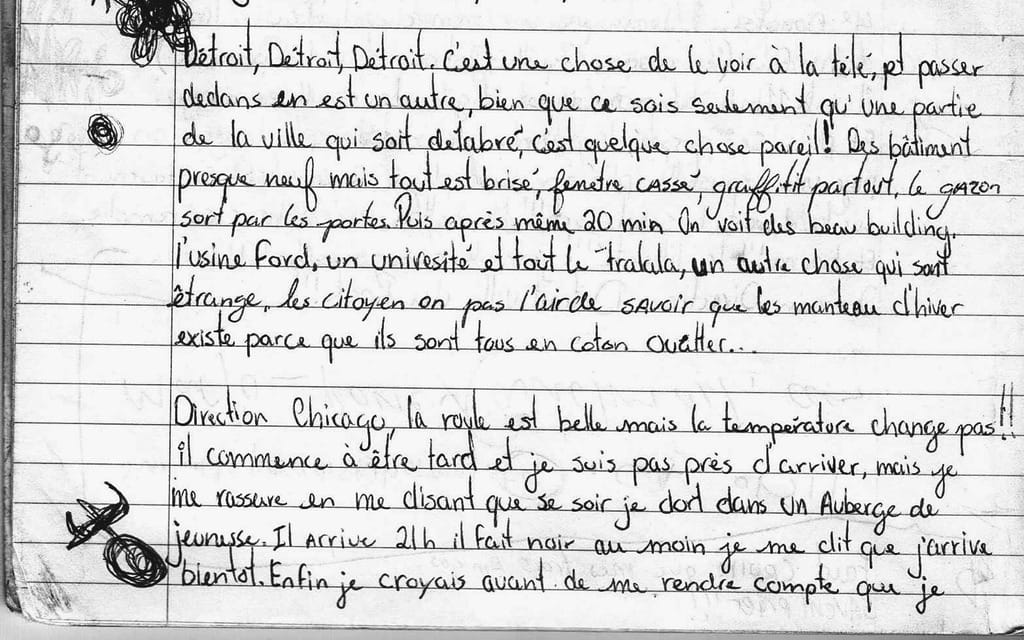 Détroit, Détroit, Détroit. C'est une chose de le voir à la télé, et passer
dedans en est un autre, bien que ce sois seulement qu'une partie
de la ville qui soit délabré, c'est quelque chose pareil! Des bâtiment
presque neuf mais tout est brisé, fenêtre cassé, graffitit partout, le gazon
sort par les portes. Puis après même 20 min On voit des beau building.
l'usine Ford, un univesité et tout le tralala, un autre chose qui sont
étrange, les citoyen on pas l'air de savoir que les manteau d'hiver
existe parce que ils sont tous en coton Ouatter...
Direction Chicago, la royle est belle mais la température change pas!!
il commence à être tard et je suis pas près d'arriver, mais je
me rassure en me disant que se soir je dort dans un Auberge de
jeunesse. Il arrive 21h il fait noir au moin je me dit que j'arrive
bientot. Enfin je croyais avant de me rendre compte que je